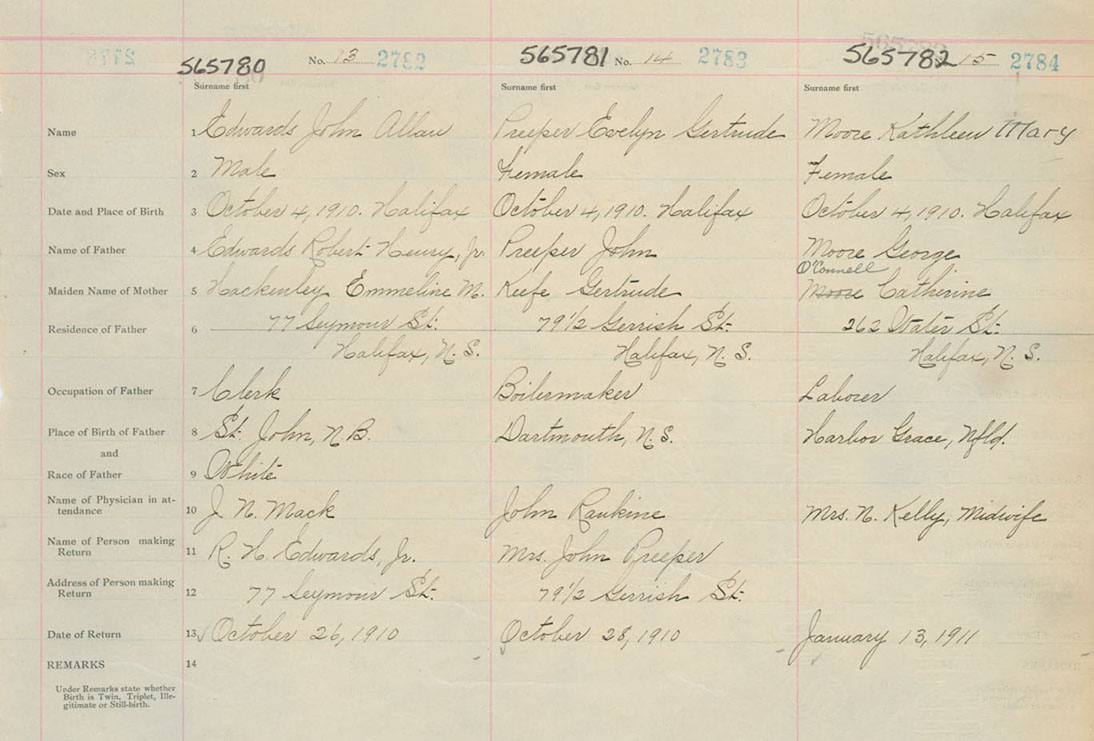 565780 No. 13 2782 565781 No. 14 2783 565782 15 2784
Surname first Surname first Surname first
Name 1 Edwards John Allan Preeper Evelyn Gertrude Moore Kathleen Mary
Sex 2 Male Female Female
Date and Place of Birth 3 October 4, 1910. Halifax October 4, 1910. Halifax October 4, 1910. Halifax
Name of Father 4 Edwards Robert Henry, Jr. Preeper John Moore George
O'Connell
Maiden Name of Mother 5 Hackenley Emmeline M. Keefe Gertrude Moore Catherine
Residence of Father 6 77 Seymour St. 79 1/2 Gerrish St. 262 Water St.
Halifax, N.S. Halifax, N.S. Halifax, N.S.
Occupation of Father 7 Clerk Boilermaker Laborer
Place of Birth of Father 8 St. John, N.B. Dartmouth, N.S. Harbor Grace, Nfld.
and
Race of Father 9 White
Name of Physician in at-
tendance 10 J. N. Mack John Rankine Mrs. N. Kelly, Midwife
Name of Person making
Return 11 R. H. Edwards, Jr. Mrs. John Preeper
Address of Person making
Return 12 77 Seymour St. 79 1/2 Gerrish St.
Date of Return 13 October 26, 1910 October 28, 1910 January 13, 1911
REMARKS 14
Under Remarks state whether
Birth is Twin, Triplet, Ille-
gitimate or Still-birth.